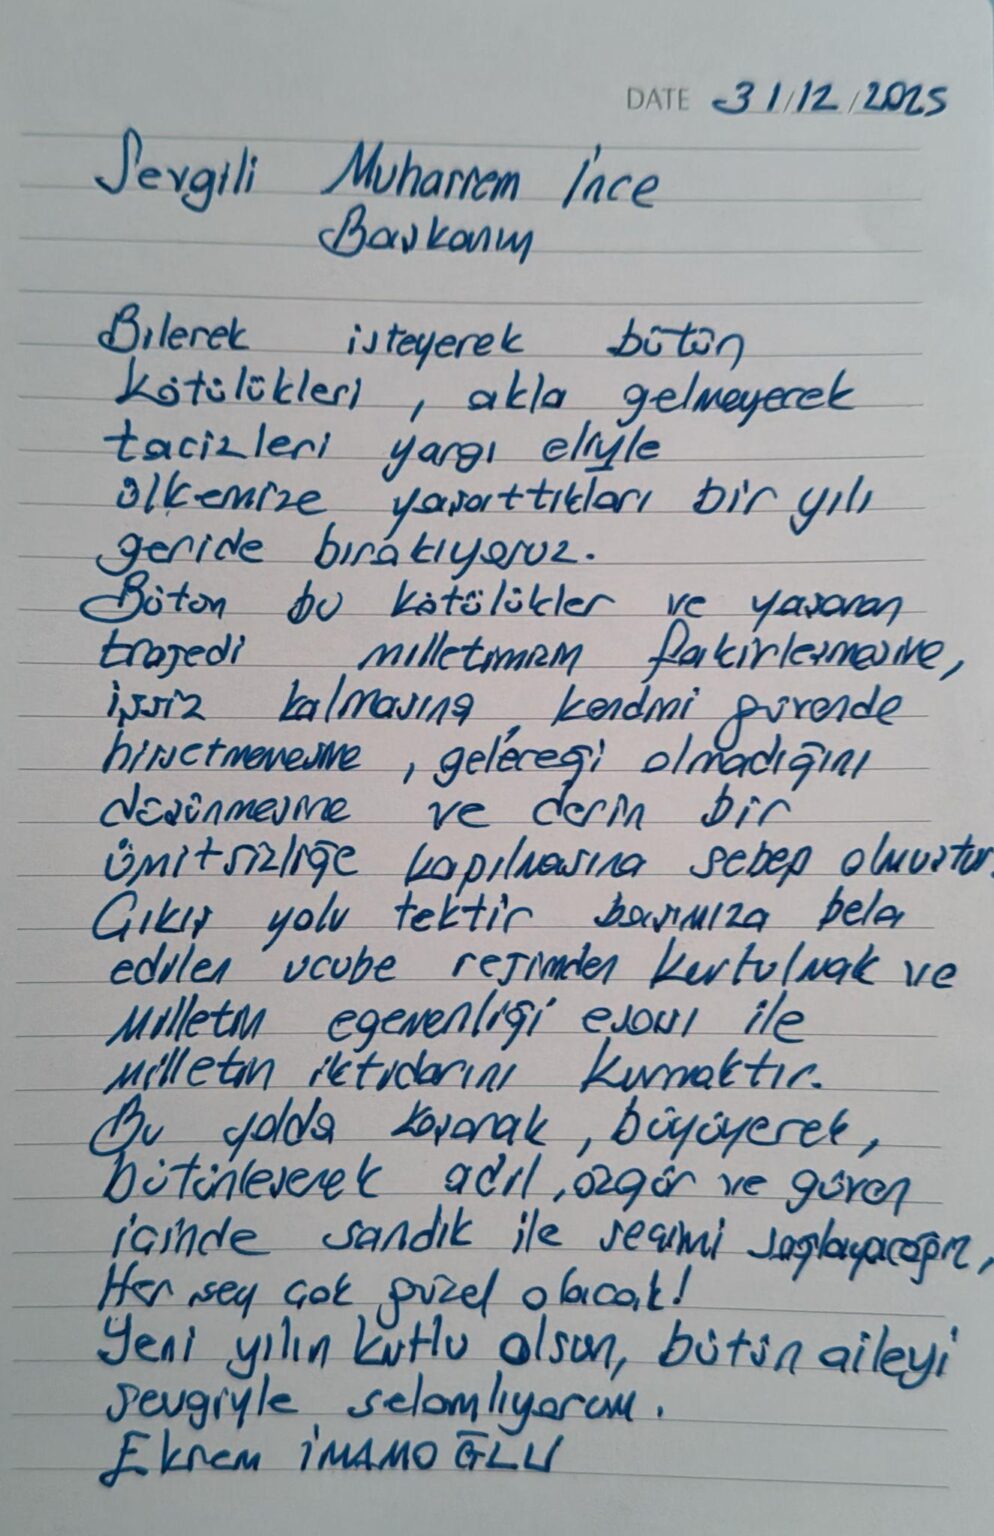 DATE 31/12/2025
Sevgili Muharrem İnce
Başkanım
Bilerek isteyerek bütün
kötülükleri, akla gelmeyecek
tacizleri yargı eliyle
ülkemize yaşarttıkları bir yılı
geride bırakıyoruz.
Bütün bu kötülükler ve yaşanan
trajedi milletimizin fakirleşmesine,
işsiz kalmasına, kendini güvende
hissetmemesine, geleceği olmadığını
düşünmesine ve derin bir
ümitsizliğe kapılmasına sebep olmuştur.
Çıkış yolu tektir başımıza bela
edilen ucube rejimden kurtulmak ve
Milletin egemenliği esası ile
milletin iktidarını kurmaktır.
Bu yolda koşarak, büyüyerek,
bütünleşerek adil, özgür ve güven
içinde sandık ile seçimi sağlayacağız,
Her şey çok güzel olacak!
Yeni yılın kutlu olsun, bütün aileyi
sevgiyle selamlıyorum.
Ekrem İMAMOĞLU